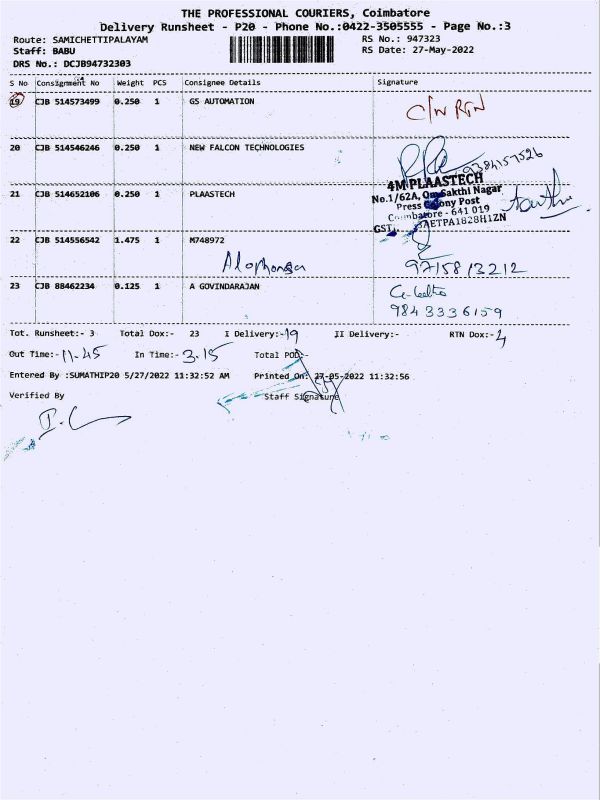 THE PROFESSIONAL COURIERS, Coimbatore
Delivery Runsheet - P20 - Phone No.:0422-3505555 - Page No.:3
Route: SAMICHETTIPALAYAM RS No.: 947323
Staff: BABU RS Date: 27-May-2022
DRS No.: DCJB94732303
S No Consignment No Weight PCS Consignee Details Signature
19 CJB 514573499 0.250 1 GS AUTOMATION C/N RTN
20 CJB 514546246 0.250 1 NEW FALCON TECHNOLOGIES 9384157526
4M PLAASTECH
No.1/62A, Om Sakthi Nagar
21 CJB 514652106 0.250 1 PLAASTECH
Press Colony Post
Coimbatore - 641 019
GST.
22 CJB 514556542 1.475 1 M748972
Alaphonsa 9715813212
23 CJB 88462234 0.125 1 A GOVINDARAJAN
9843336159
Tot. Runsheet:- 3 Total Dox:- 23 I Delivery:-19 II Delivery:- RTN Dox:-4
Out Time:-11.45 In Time:-3.15 Total POD:-
Entered By :SUMATHIP20 5/27/2022 11:32:52 AM Printed On: 27-05-2022 11:32:56
Verified By Staff Signature